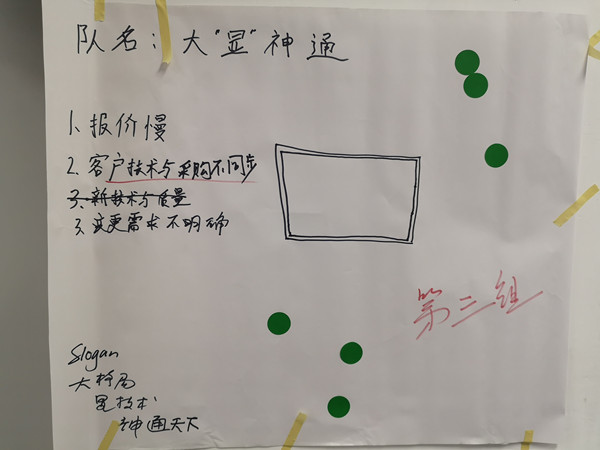 队名：大"显"神通
1、报价慢
2、客户技术与采购不同步
3、新技术与质量
3、变更需求不明确
第二组
Slogan
大格局
显技术
神通天下